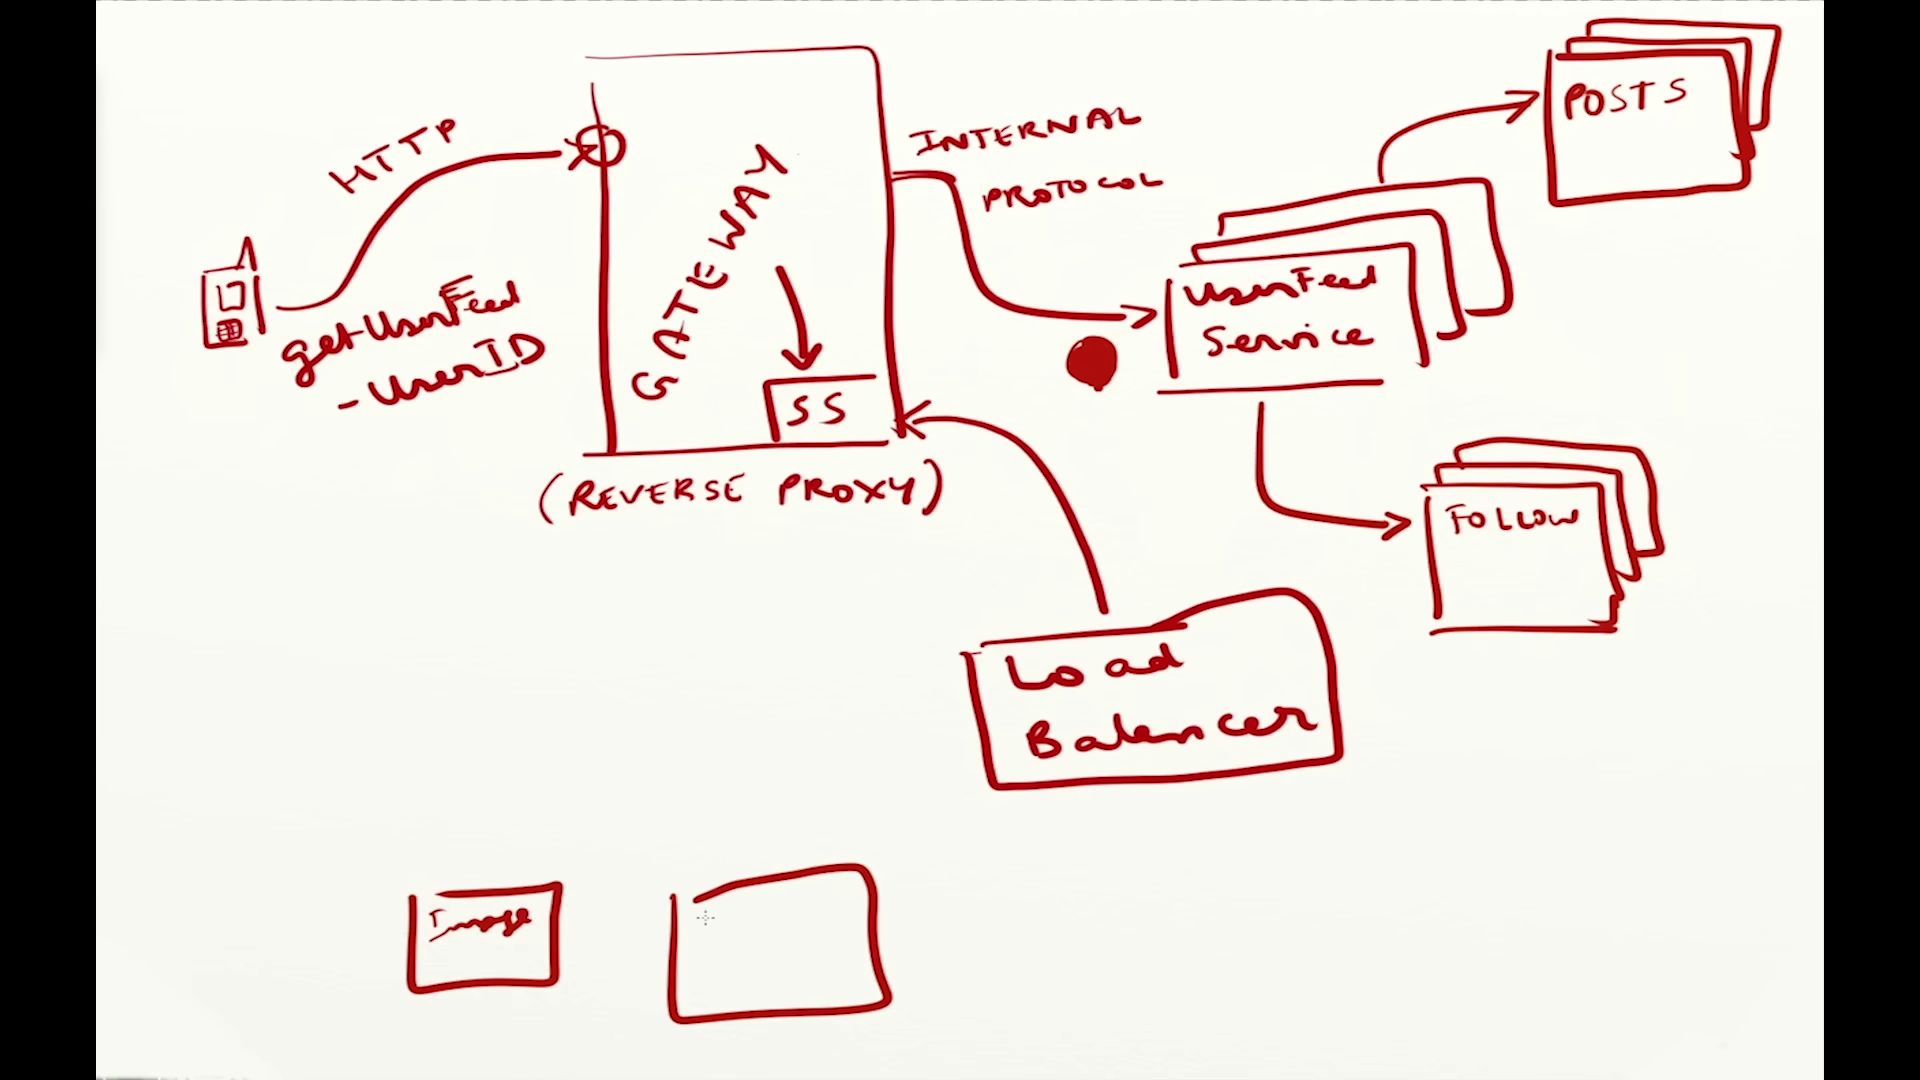 HTTP
getUserFeed
- UserID
GATEWAY
SS
(REVERSE PROXY)
INTERNAL
PROTOCOL
UserFeed
Service
POSTS
FOLLOW
Load
Balancer
Image